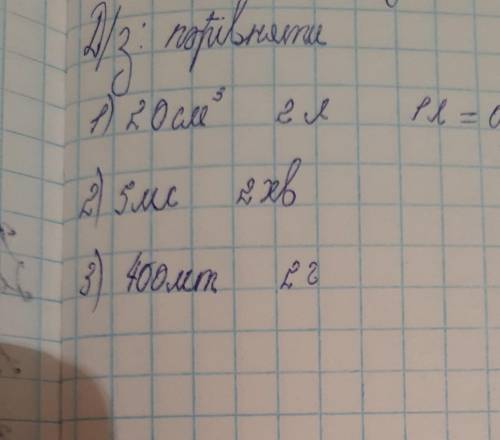 Д/з: порівняти
1) 20см³ 2л 1л = 0
2) 5мс 2хв
3) 400мт 2г